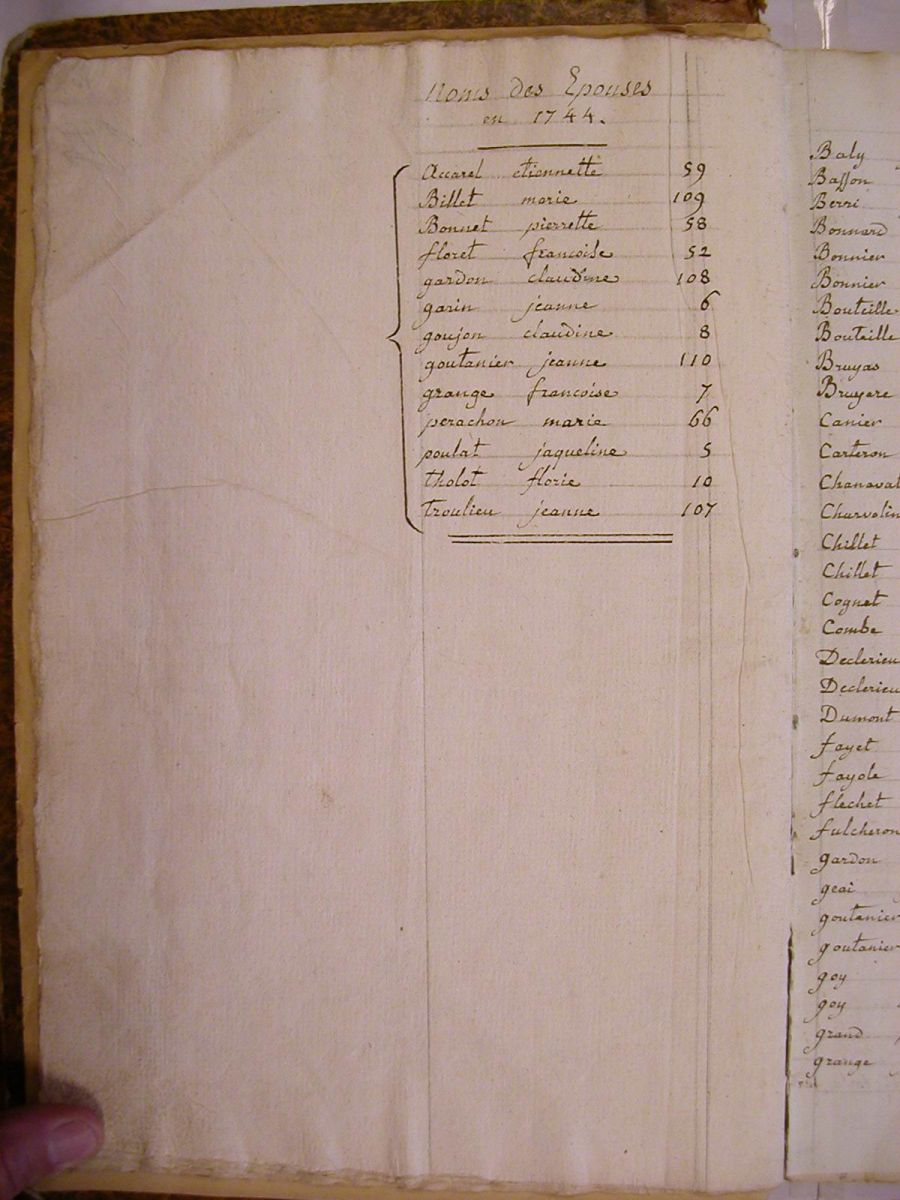 Noms des Epouses
en 1744.
Accarel etiennette 59
Billet marie 109
Bonnet pierrette 58
floret francoise 52
gardon claudine 108
garin jeanne 6
goujon claudine 8
goutanier jeanne 110
grange francoise 7
perachon marie 66
poulat jaqueline 5
tholot florie 10
Troulieu jeanne 107
Baly
Basson
Berri
Bonnard
Bonnier
Bonnier
Bouteille
Bouteille
Bruyas
Bruyere
Canier
Carteron
Chanavat
Charvolin
Chillet
Chillet
Cognet
Combe
Declerieu
Declerieu
Dumont
fayet
fayole
flechet
fulcheron
gardon
geai
goutanier
goutanier
goy
goy
grand
grange